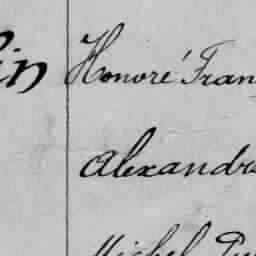 in Honoré Fran
Alexandr
Michel